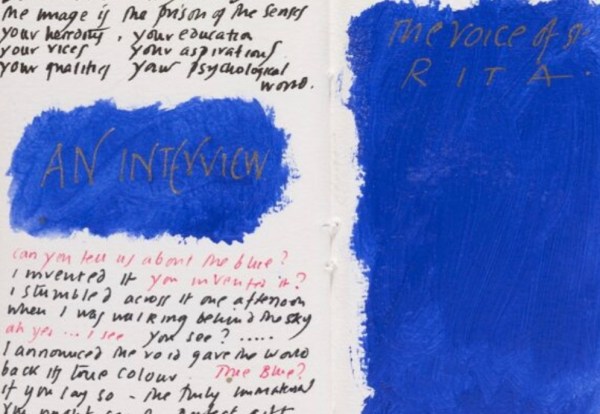 the image is the prison of the senses
your heredity, your education
your vices your aspirations
your qualities your psychological
world.
AN INTERVIEW
can you tell us about the blue?
I invented it you invented it?
I stumbled across it one afternoon
when I was walking behind the sky
ah yes ... I see you see? .....
I announced the void gave the world
back its true colour. True Blue?
if you say so - the truly immaterial
You might say a perfect gift
The voice of St
RITA.